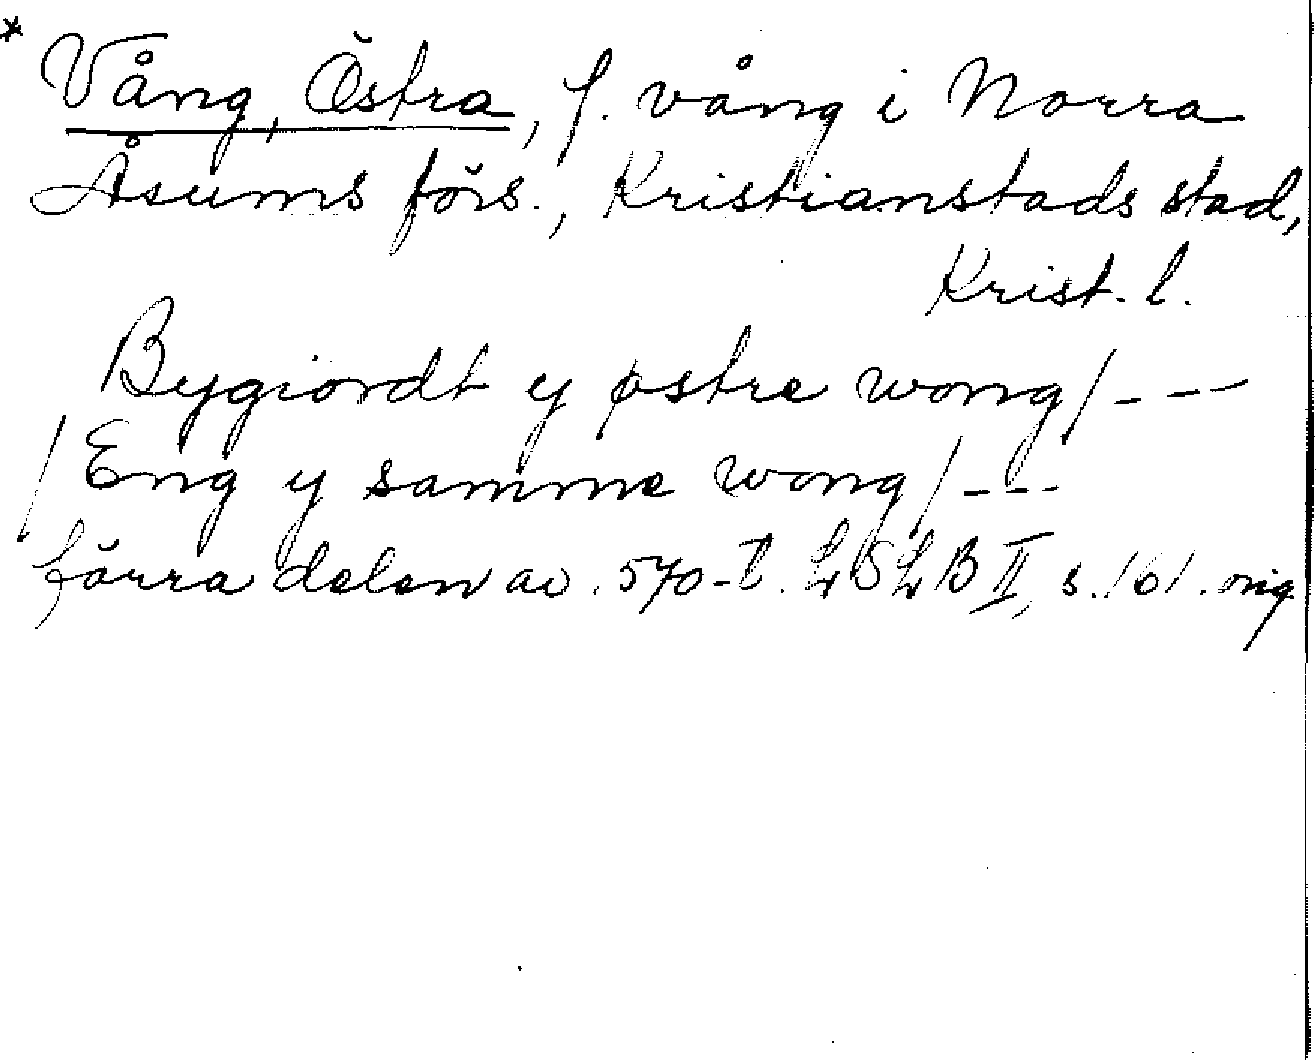 * Vång, Östra, f. vång i Norra
Åsums förs., Kristianstads stad,
Krist. l.
Bygiordt y østre wong/---
/Eng y samme wong/---
förra delen av 570-t. LSLB II, s. 161. orig